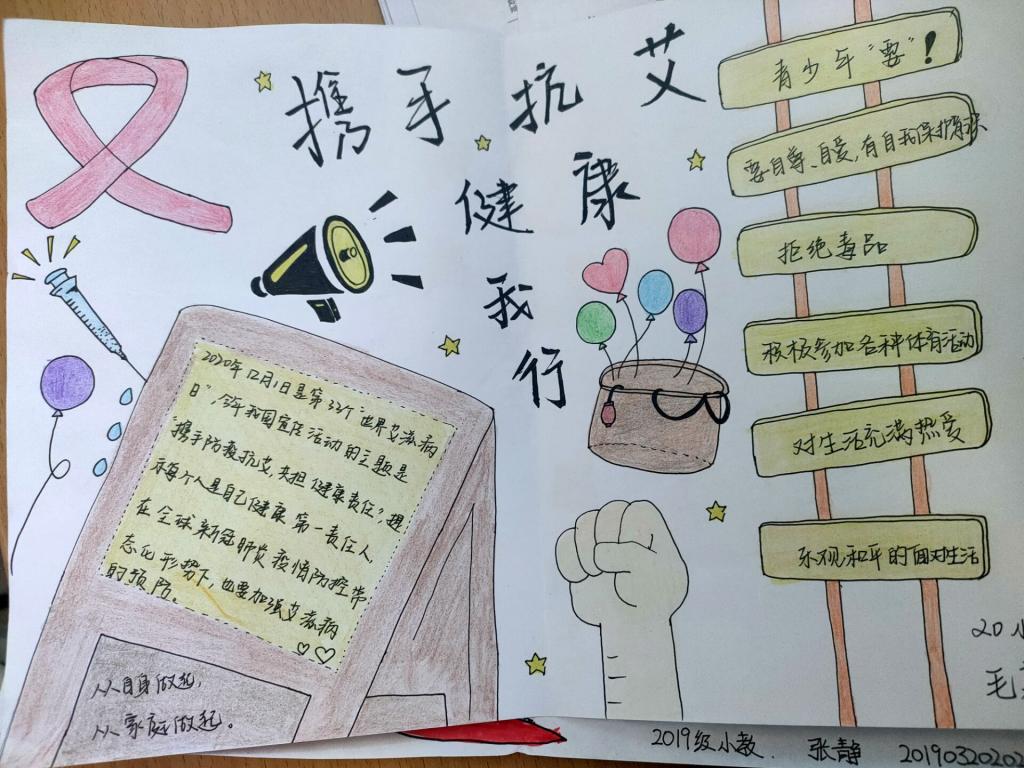 携手抗艾
健康
我
行
青少年"要"!
要自尊、自爱,有自我保护意识
拒绝毒品
积极参加各种体育活动
对生活充满热爱
乐观和平的面对生活
2020年12月1日是第33个"世界艾滋病
日",今年我国宣传活动的主题是
"携手防疫抗艾,共担健康责任",提
示每个人是自己健康第一责任人
在全球新冠肺炎疫情防控常
态化形势下,也要加强艾滋病
的预防。
从自身做起,
从家庭做起。
20小
毛
2019级小教 张静 20190320202